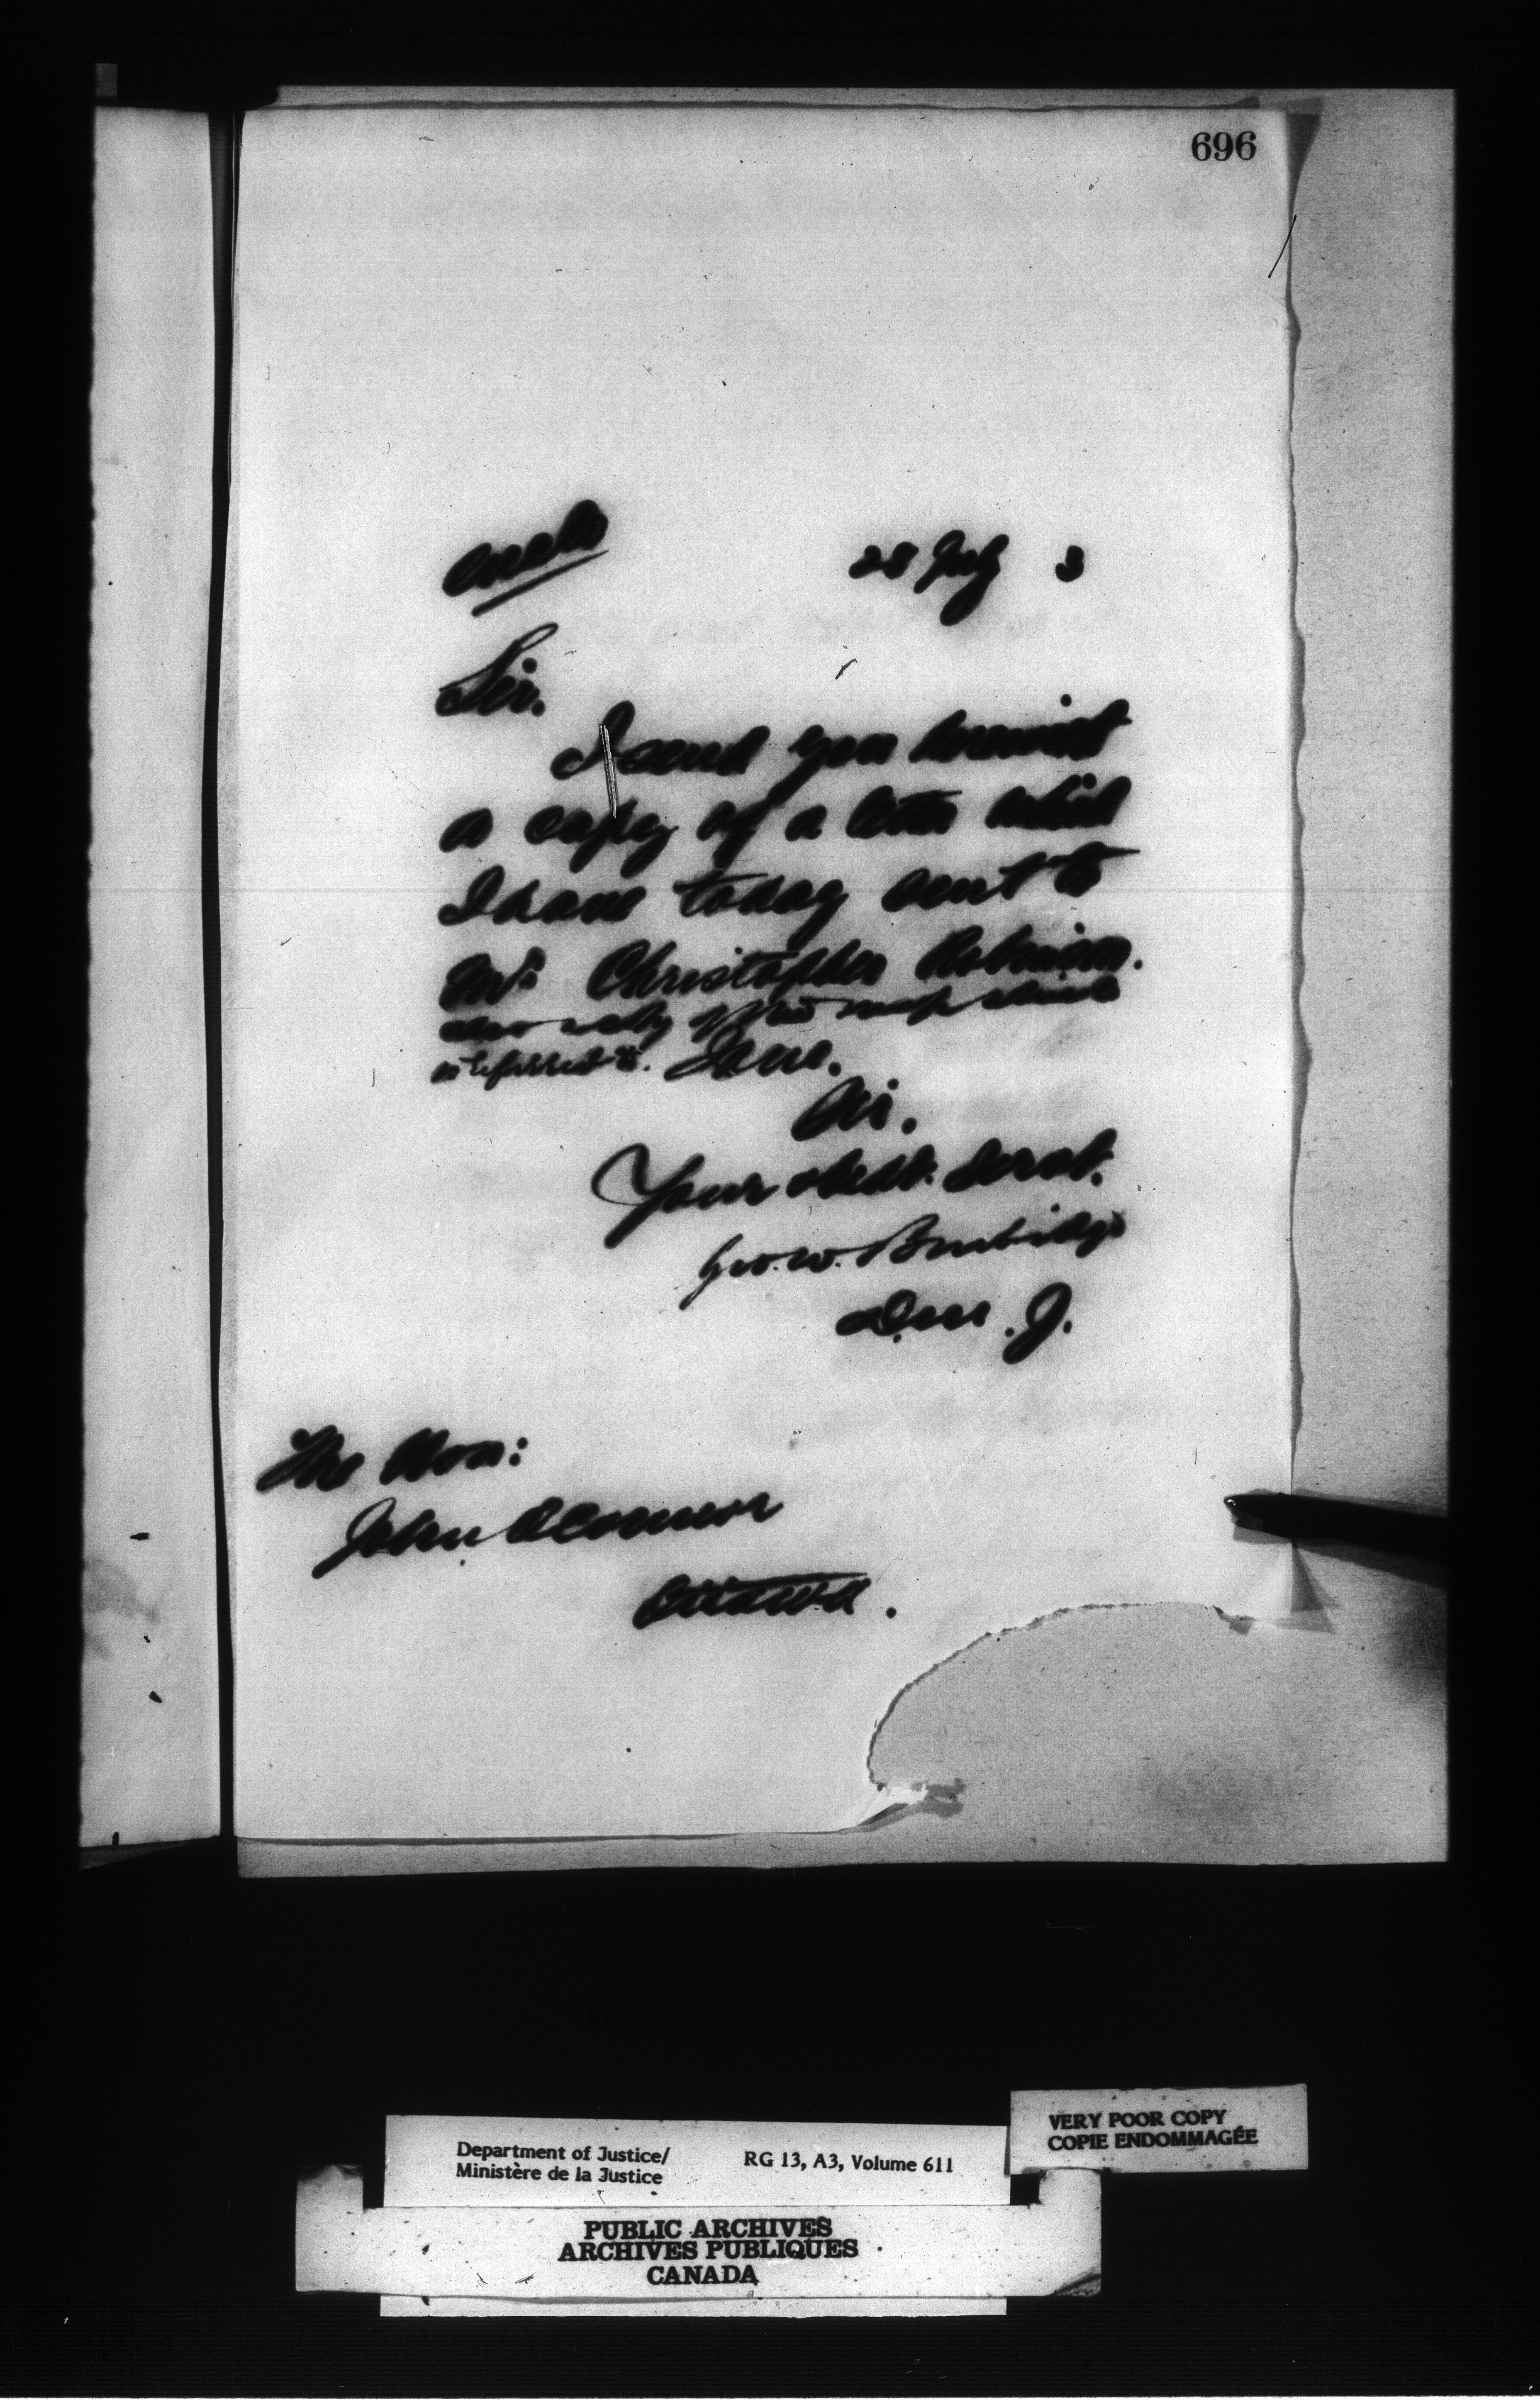 696
28 July 3
Sir.
I send you herewith
a copy of a letter which
I have today sent to
Mr Christopher Robinson.
also a copy of the map which
is referred to. I am.
Sir.
Your obedt. Servt.
Geo. W. Burbidge
D.M.J.
The Hon:
John O'Connor
Ottawa.
Department of Justice/
Ministère de la Justice
RG 13, A3, Volume 611
VERY POOR COPY
COPIE ENDOMMAGÉE
PUBLIC ARCHIVES
ARCHIVES PUBLIQUES
CANADA